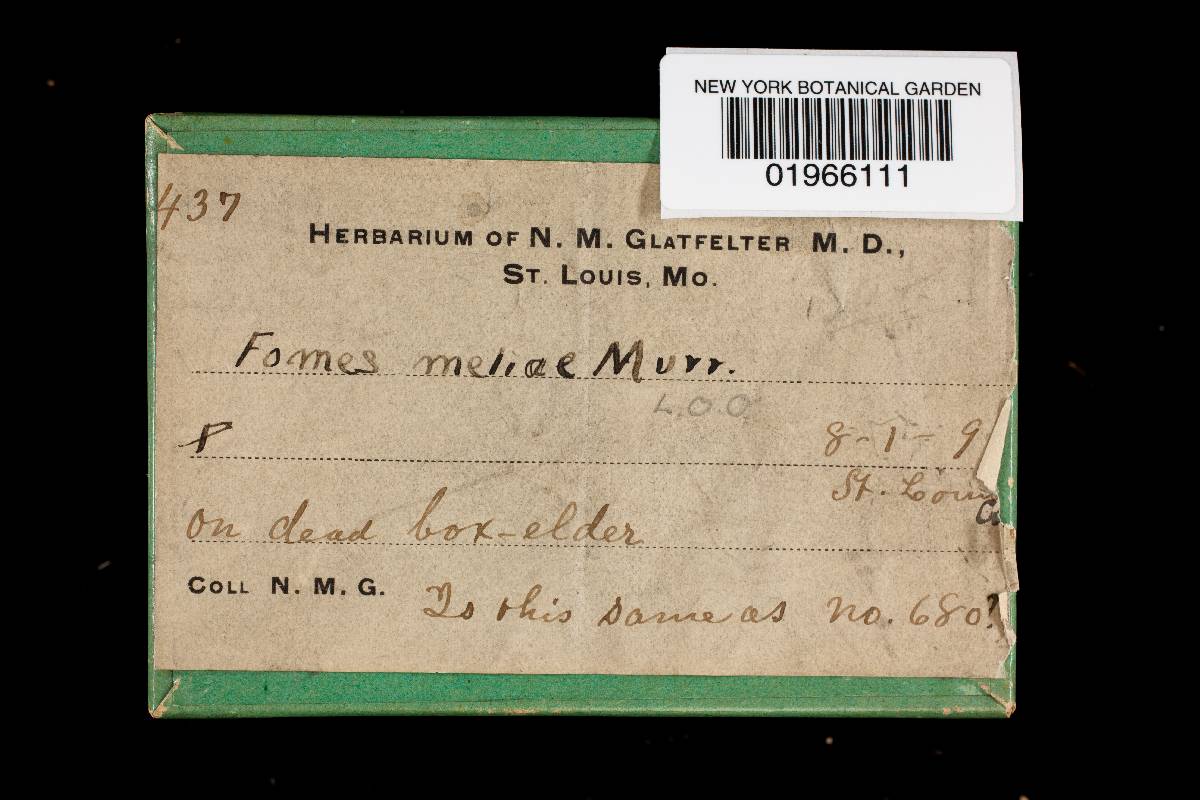 NEW YORK BOTANICAL GARDEN
01966111
437
HERBARIUM OF N. M. GLATFELTER M. D.,
ST. LOUIS, MO.
Fomes meliae Murr.
L.O.O.
P 8-1-9
St. Loui
on dead box-elder
COLL N. M. G. Is this same as no. 680?